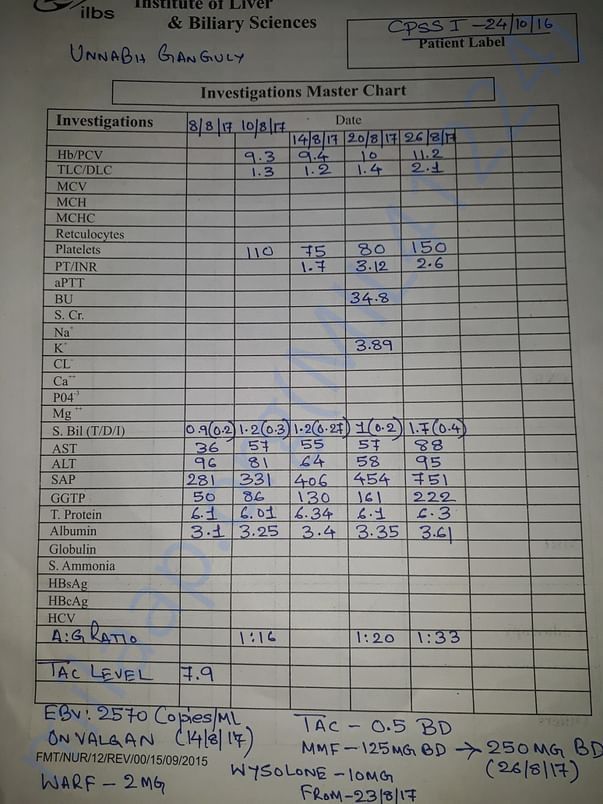 ilbs
Institute of Liver
& Biliary Sciences
CPSS I - 24/10/16
Patient Label
UNNABH GANGULY
Investigations Master Chart
Investigations 8/8/17 10/8/17 Date
14/8/17 20/8/17 26/8/17
Hb/PCV 9.3 9.4 10 11.2
TLC/DLC 1.3 1.2 1.4 2.1
MCV
MCH
MCHC
Retculocytes
Platelets 110 75 80 150
PT/INR 1.7 3.12 2.6
aPTT
BU 34.8
S. Cr.
Na+
K+ 3.89
CL-
Ca++
P04-3
Mg++
S. Bil (T/D/I) 0.9(0.2) 1.2(0.3) 1.2(0.27) 1(0.2) 1.7(0.4)
AST 36 57 55 57 88
ALT 96 81 64 58 95
SAP 281 331 406 454 751
GGTP 50 86 130 161 222
T. Protein 6.1 6.01 6.34 6.1 6.3
Albumin 3.1 3.25 3.4 3.35 3.61
Globulin
S. Ammonia
HBsAg
HBcAg
HCV
A:G RATIO 1:16 1:20 1:33
TAC LEVEL 7.9
EBV: 2570 Copies/ML
ON VALGAN (14/8/17)
TAC - 0.5 BD
MMF - 125MG BD → 250 MG BD
(26/8/17)
FMT/NUR/12/REV/00/15/09/2015
WARF - 2MG
WYSOLONE - 10MG
FROM - 23/8/17